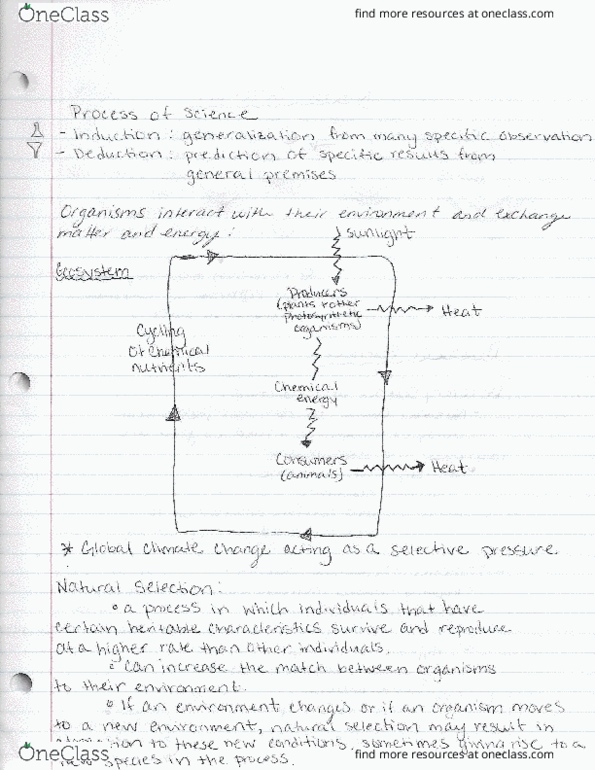 OneClass
find more resources at oneclass.com
Process of science
- Induction : generalization from many specific observation
- Deduction : prediction of specific results from
general premises
Organisms interact with their environment and exchange
matter and energy :
sunlight
Ecosystem
Producers
(plants & other
photosynthetic
organisms)
Heat
Cycling
of chemical
nutrients
Chemical
energy
Consumers
(animals)
Heat
* Global climate change acting as a selective pressure.
Natural Selection :
° a process in which individuals that have
certain heritable characteristics survive and reproduce
at a higher rate than other individuals.
° Can increase the match between organisms
to their environment.
° If an environment changes or if an organism moves
to a new environment, natural selection may result in
to these new conditions, sometimes giving rise to a
species in the process.
OneClass
find more resources at oneclass.com